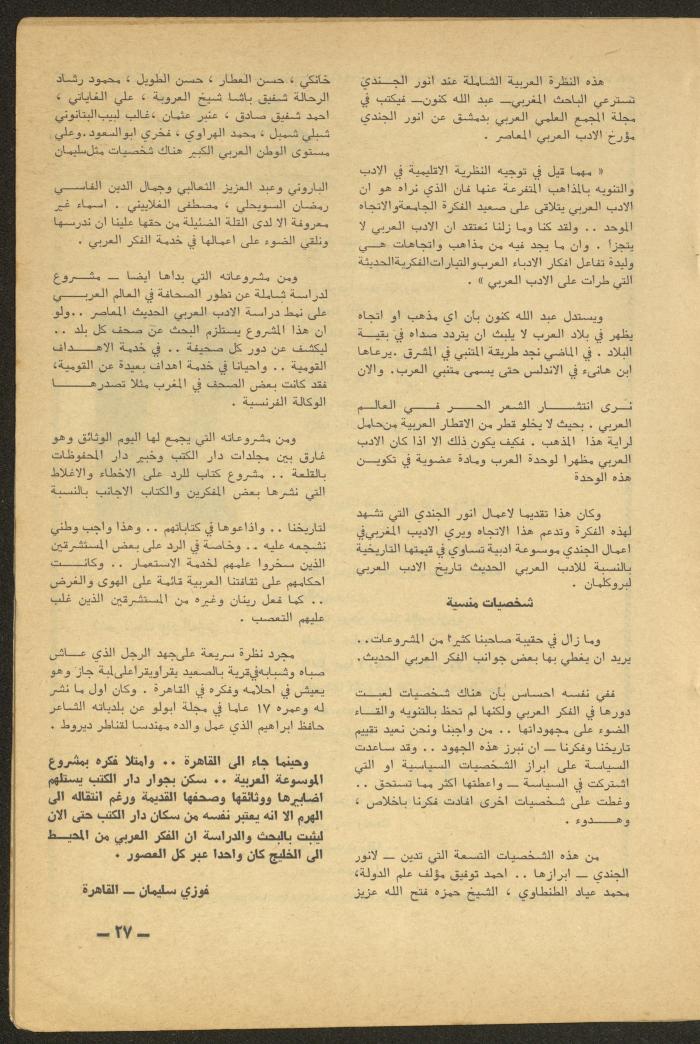 هذه النظرة العربية الشاملة عند انور الجـــندي
تسترعي الباحث المغربي ــ عبد الله كنون ــ فيكتب في
مجلة المجمع العلمي العربي بدمشق عن انور الجندي
مؤرخ الادب العربي المعاصر .
« مهما قيل في توجيه النظرية الاقليمية في الادب
والتنويه بالمذاهب المتفرعة عنها فان الذي نراه هو ان
الادب العربي يتلاقى على صعيد الفكرة الجامعة والاتجاه
الموحد . . ولقد كنا وما زلنا نعتقد ان الادب العربي لا
يتجزا . وان ما يجد فيه من مذاهب واتجاهات هـــي
وليدة تفاعل افكار الادباء العرب والتيارات الفكرية الحديثة
التي طرات على الادب العربي » .
ويستدل عبد الله كنون بأن اي مذهب او اتجاه
يظهر في بلاد العرب لا يلبث ان يتردد صداه في بقيـــة
البلاد . في الماضي نجد طريقة المتنبي في المشرق . يرعاها
ابن هانىء في الاندلس حتى يسمى متنبي العرب . والان
نــرى انتشـــار الشعر الحـــر فـــي العالـــم
العربي . بحيث لا يخلو قطر من الاقطار العربية من حامل
لراية هذا المذهب . فكيف يكون ذلك الا اذا كان الادب
العربي مظهرا لوحدة العرب ومادة عضوية في تكويـــن
هذه الوحدة
وكان هذا تقديما لاعمال انور الجندي التي تشهد
لهذه الفكرة وتدعم هذا الاتجاه ويري الاديب المغربي في
اعمال الجندي موسوعة ادبية تساوي في قيمتها التاريخية
بالنسبة للادب العربي الحديث تاريخ الادب العربي
لبروكلمان .
شخصيات منسية
وما زال في حقيبة صاحبنا كثيرا من المشروعات . .
يريد ان يغطي بها بعض جوانب الفكر العربي الحديث .
ففي نفسه احساس بأن هناك شخصيات لعبـــت
دورها في الفكر العربي ولكنها لم تحظ بالتنويه والقـــاء
الضوء على مجهوداتها . . من واجبنا ونحن نعيد تقييم
تاريخنا وفكرنا ــ ان نبرز هذه الجهود . . وقد ساعدت
السياسة على ابراز الشخصيات السياسية او التي
اشتركت في السياسة ــ واعطتها اكثر مما تستحق . .
وغطت على شخصيات اخرى افادت فكرنا باخلاص ،
وهـــدوء .
من هذه الشخصيات التسعة التي تدين ــ لانور
الجندي ــ ابرازها . . احمد توفيق مؤلف علم الدولة ،
محمد عياد الطنطاوي ، الشيخ حمزه فتح الله عزيز
خانكي ، حسن العطار ، حسن الطويل ، محمود رشاد
الرحالة شفيق باشا شيخ العروبة ، علي الغاياتي ،
احمد شفيق صادق ، عنبر عثمان ، غالب لبيب البتانوني
شبلي شميل ، محمد الهراوي ، فخري ابو السعود . وعلي
مستوى الوطن العربي الكبير هناك شخصيات مثل سليمان
الباروني وعبد العزيز الثعالبي وجمال الدين الفاســـي
رمضان السويحلي ، مصطفى الغلاييني . اسماء غير
معروفة الا لدى القلة الضئيلة من حقها علينا ان ندرسها
ونلقي الضوء على اعمالها في خدمة الفكر العربي .
ومن مشروعاته التي بدأها ايضا ــ مشـــروع
لدراسة شاملة عن تطور الصحافة في العالم العربـــي
على نمط دراسة الادب العربي الحديث المعاصر . . ولو
ان هذا المشروع يستلزم البحث عن صحف كل بلد . .
ليكشف عن دور كل صحيفة . . في خدمة الاهـــداف
القومية . . واحيانا في خدمة اهداف بعيدة عن القومية ،
فقد كانت بعض الصحف في المغرب مثلا تصدرهـــا
الوكالة الفرنسية .
ومن مشروعاته التي يجمع لها اليوم الوثائق وهو
غارق بين مجلدات دار الكتب وخبير دار المحفوظات
بالقلعة . . مشروع كتاب للرد على الاخطاء والاغلاط
التي نشرها بعض المفكرين والكتاب الاجانب بالنسبة
لتاريخنا . . واذاعوها في كتاباتهم . . وهذا واجب وطني
نشجعه عليه . . وخاصة في الرد على بعض المستشرقين
الذين سخروا علمهم لخدمة الاستعمار . . وكانـــت
احكامهم على ثقافتنا العربية قائمة على الهوى والغرض
. . كما فعل رينان وغيره من المستشرقين الذين غلب
عليهم التعصب .
مجرد نظرة سريعة على جهد الرجل الذي عـــاش
صباه وشبابه في قرية بالصعيد يقرا ويقرا على لمبة جاز وهو
يعيش في احلامه وفكره في القاهرة . وكان اول ما نشر
له وعمره ١٧ عاما في مجلة ابولو عن بلدياته الشاعر
حافظ ابراهيم الذي عمل والده مهندسا لقناطر ديروط .
وحينما جاء الى القاهرة . . وامتلا فكره بمشروع
الموسوعة العربية . . سكن بجوار دار الكتب يستلهم
اضابيرها ووثائقها وصحفها القديمة ورغم انتقاله الى
الهرم الا انه يعتبر نفسه من سكان دار الكتب حتى الان
ليثبت بالبحث والدراسة ان الفكر العربي من المحيـــط
الى الخليج كان واحدا عبر كل العصور .
فوزي سليمان ــ القاهرة
ــ ٢٧ ــ